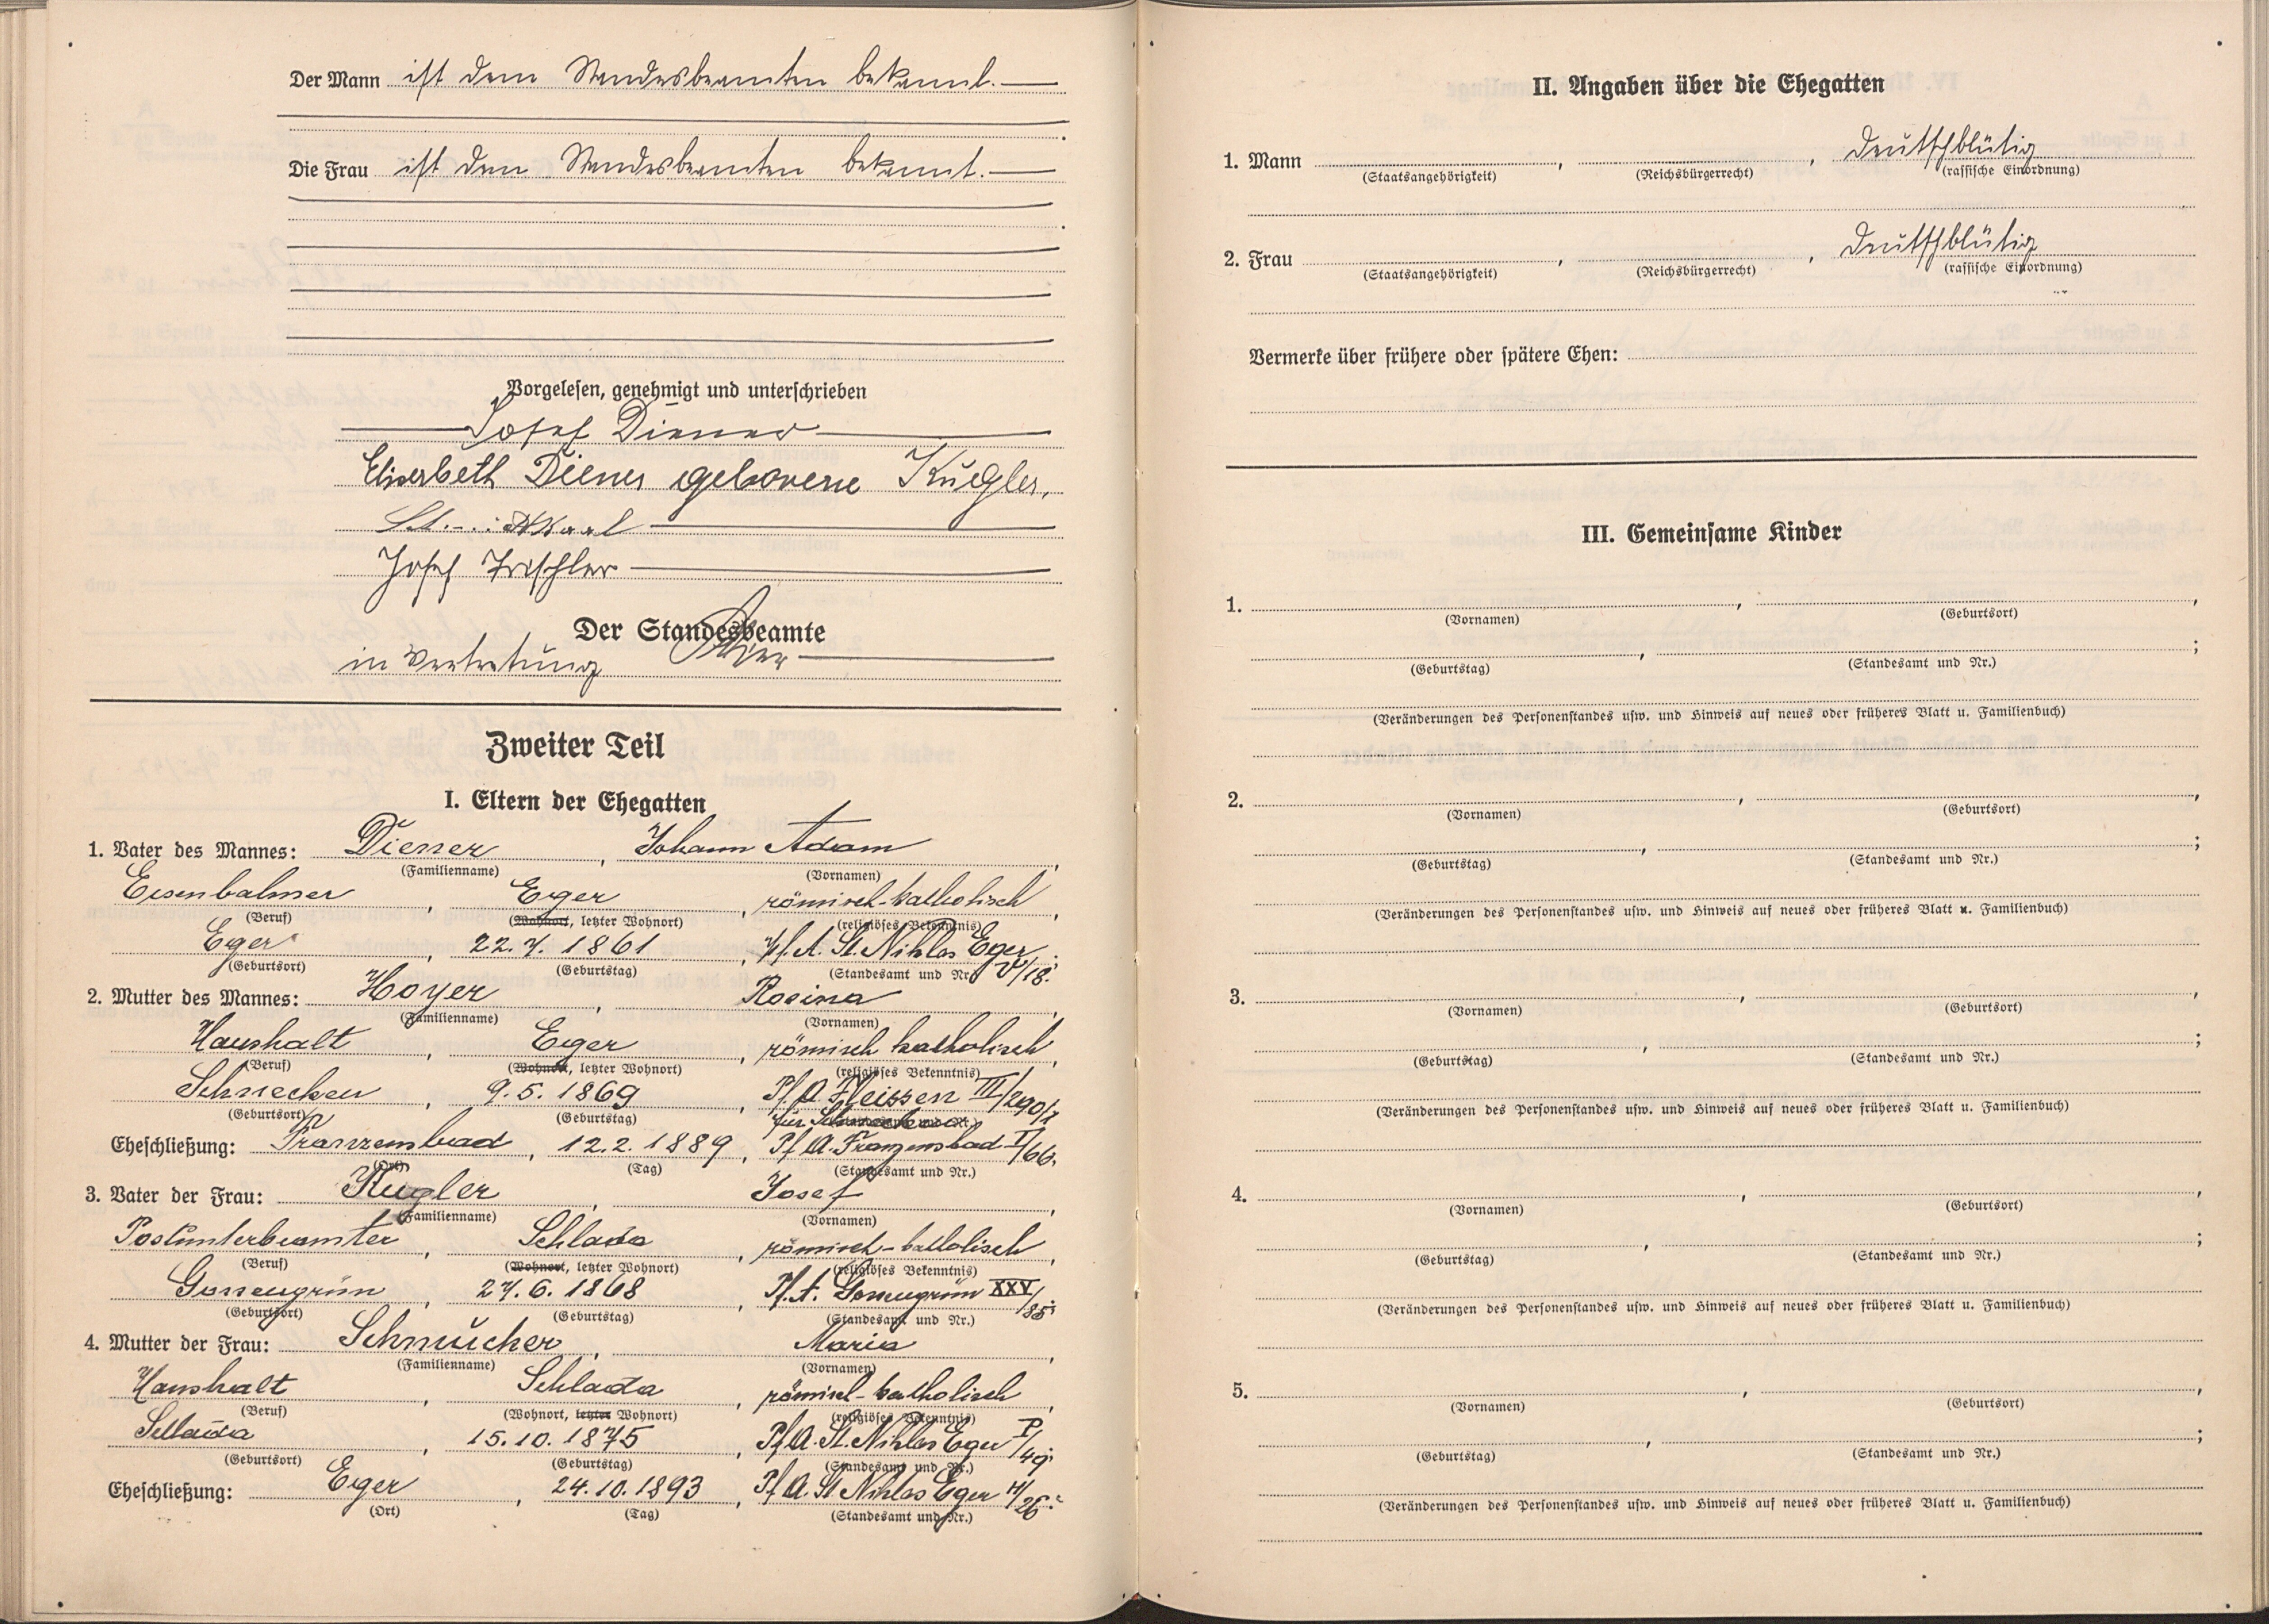 Der Mann ist dem Standesbeamten bekannt.
Die Frau ist dem Standesbeamten bekannt.
Vorgelesen, genehmigt und unterschrieben
Josef Diener
Elisabeth Diener geborene Kugler,
Josef Trischler
Der Standesbeamte
in Vertretung
Zweiter Teil
I. Eltern der Ehegatten
1. Vater des Mannes: Diener, Johann Adam,
(Familienname) (Vornamen)
Eisenbahner, Eger, römisch-katholisch,
(Beruf) (Wohnort, letzter Wohnort) (religiöses Bekenntnis)
Eger, 22.7.1861, Pf.A. St. Niklas Eger V/18.
(Geburtsort) (Geburtstag) (Standesamt und Nr.)
2. Mutter des Mannes: Hoyer, Rosina,
(Familienname) (Vornamen)
Haushalt, Eger, römisch katholisch,
(Beruf) (Wohnort, letzter Wohnort) (religiöses Bekenntnis)
Schnecken, 9.5.1869, Pf.A. Fleissen III/290/1
(Geburtsort) (Geburtstag) für
Eheschließung: Franzensbad, 12.2.1889, Pf.A. Franzensbad I/66.
(Ort) (Tag) (Standesamt und Nr.)
3. Vater der Frau: Kugler, Josef,
(Familienname) (Vornamen)
Postunterbeamter, Schlada, römisch-katholisch,
(Beruf) (Wohnort, letzter Wohnort) (religiöses Bekenntnis)
Gossengrün, 27.6.1868, Pf.A. Gossengrün XXV/85.
(Geburtsort) (Geburtstag) (Standesamt und Nr.)
4. Mutter der Frau: Schmucker, Maria,
(Familienname) (Vornamen)
Haushalt, Schlada, römisch-katholisch,
(Beruf) (Wohnort, letzter Wohnort) (religiöses Bekenntnis)
Schlada, 15.10.1875, Pf.A. St. Niklas Eger P/49.
(Geburtsort) (Geburtstag) (Standesamt und Nr.)
Eheschließung: Eger, 24.10.1893, Pf.A. St Niklas Eger H/26.
(Ort) (Tag) (Standesamt und Nr.)
II. Angaben über die Ehegatten
1. Mann , , deutschblütig
(Staatsangehörigkeit) (Reichsbürgerrecht) (rassische Einordnung)
2. Frau , , deutschblütig
(Staatsangehörigkeit) (Reichsbürgerrecht) (rassische Einordnung)
Vermerke über frühere oder spätere Ehen:
III. Gemeinsame Kinder
1. , ,
(Vornamen) (Geburtsort)
, ;
(Geburtstag) (Standesamt und Nr.)
(Veränderungen des Personenstandes usw. und Hinweis auf neues oder früheres Blatt u. Familienbuch)
2. , ,
(Vornamen) (Geburtsort)
, ;
(Geburtstag) (Standesamt und Nr.)
(Veränderungen des Personenstandes usw. und Hinweis auf neues oder früheres Blatt u. Familienbuch)
3. , ,
(Vornamen) (Geburtsort)
, ;
(Geburtstag) (Standesamt und Nr.)
(Veränderungen des Personenstandes usw. und Hinweis auf neues oder früheres Blatt u. Familienbuch)
4. , ,
(Vornamen) (Geburtsort)
, ;
(Geburtstag) (Standesamt und Nr.)
(Veränderungen des Personenstandes usw. und Hinweis auf neues oder früheres Blatt u. Familienbuch)
5. , ,
(Vornamen) (Geburtsort)
, ;
(Geburtstag) (Standesamt und Nr.)
(Veränderungen des Personenstandes usw. und Hinweis auf neues oder früheres Blatt u. Familienbuch)